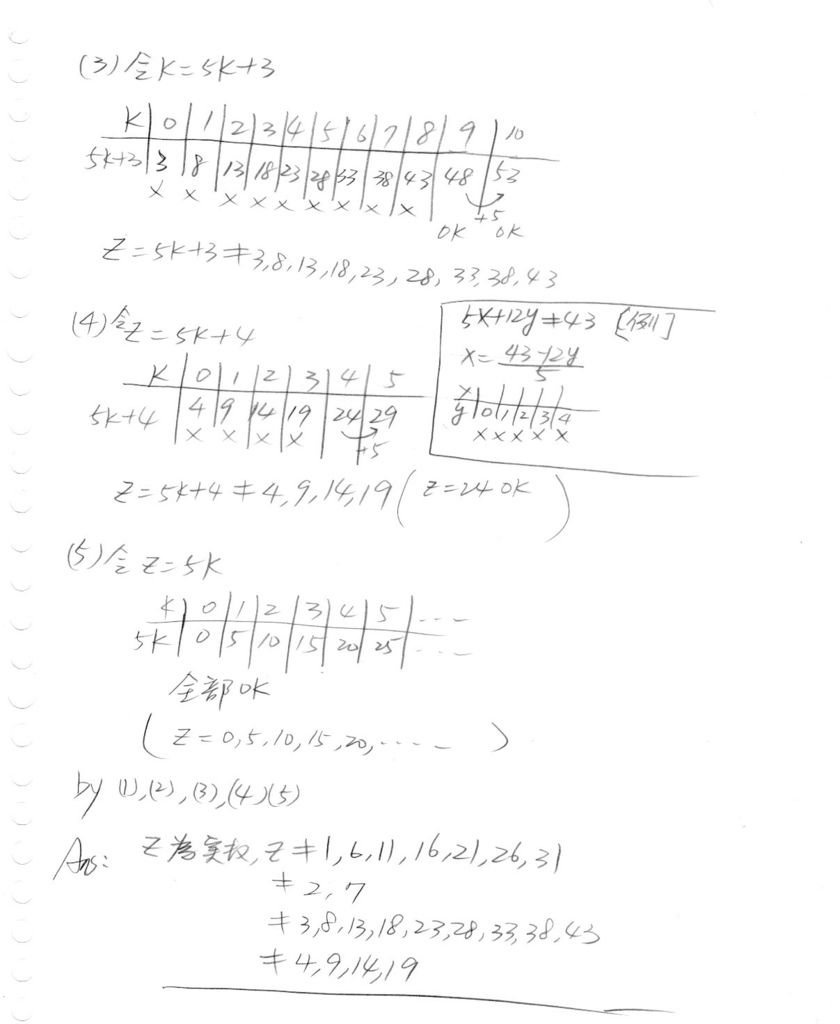 (3) 令K=5K+3
K 0 1 2 3 4 5 6 7 8 9 10
5K+3 3 8 13 18 23 28 33 38 43 48 53
x x x x x x x x x +5
OK OK
Z=5K+3≠3,8,13,18,23,28,33,38,43
(4) 令Z=5K+4
K 0 1 2 3 4 5
5K+4 4 9 14 19 24 29
x x x x +5
Z=5K+4≠4,9,14,19 (Z=24 OK)
5X+12y≠43 [例]
X=43-12y
5
X
y 0 1 2 3 4
x x x x x
(5) 令Z=5K
K 0 1 2 3 4 5 ....
5K 0 5 10 15 20 25 ....
全部OK
(Z=0,5,10,15,20,.....)
by (1),(2),(3),(4)(5)
Ans: Z為實数,Z≠1,6,11,16,21,26,31
≠2,7
≠3,8,13,18,23,28,33,38,43
≠4,9,14,19